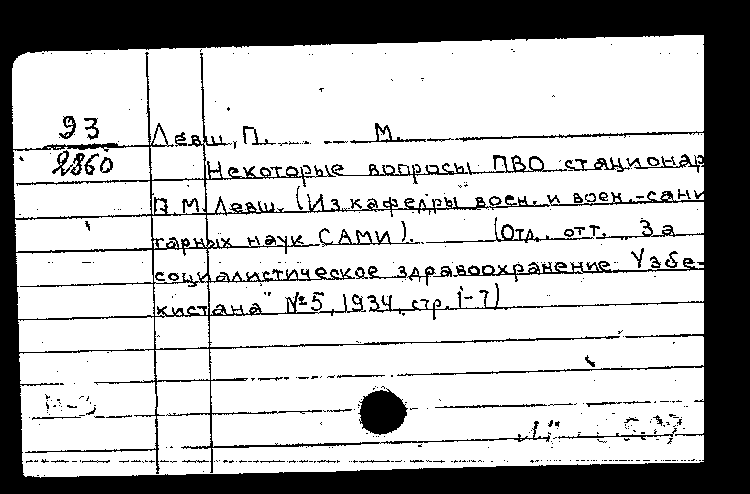 93
2860
Левш, П. М.
Некоторые вопросы ПВО стационар
П.М. Левш. (Из кафедры воен. и воен.-сани
тарных наук САМИ). (Отд. отт. За
социалистическое здравоохранение Узбе-
кистана" №5, 1934, стр. 1-7)
М-3